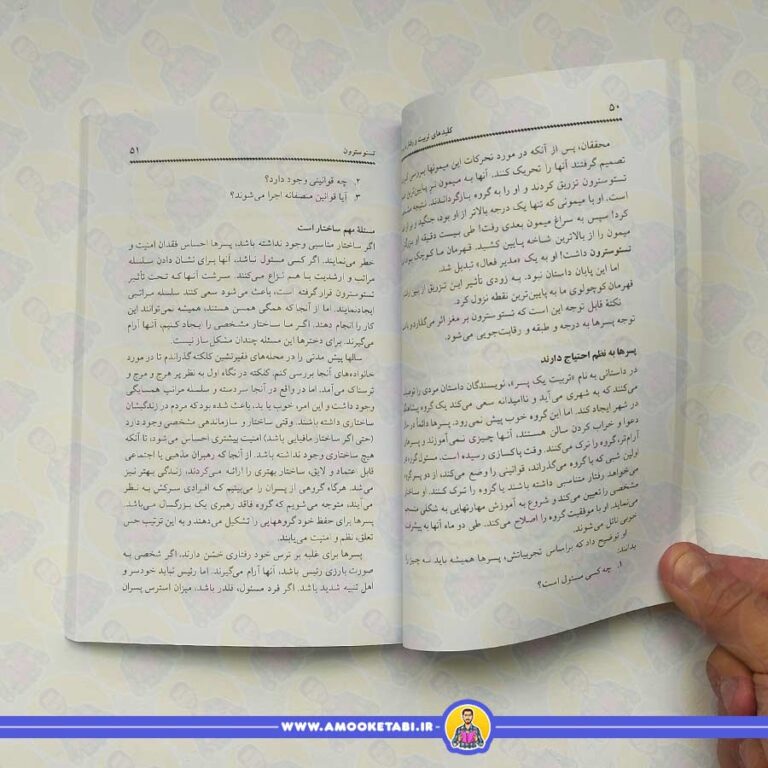 ۵۰
کلیدهای تربیت و رفتار
محققان، پس از آنکه در مورد تحرکات این میمونها بررسی
تصمیم گرفتند آنها را تحریک کنند. آنها به میمون نر پایین‌ترین
تستوسترون تزریق کردند و او را به گروه بازگرداندند. نتیجه
است. او با میمونی که تنها یک درجه بالاتر از او بود، جنگید و
کرد! سپس به سراغ میمون بعدی رفت! طی بیست دقیقه او
میمون را از بالاترین شاخه پایین کشید. قهرمان ما کوچک بود
تستوسترون داشت! او به یک «مدیر فعال» تبدیل شد.
اما این پایان داستان نبود. به زودی تأثیر این تزریق از بین
قهرمان کوچولوی ما به پایین‌ترین نقطه نزول کرد.
نکتهٔ قابل توجه این است که تستوسترون بر مغز اثر می‌گذارد و
توجه پسرها به درجه و طبقه و رقابت‌جویی می‌شود.
پسرها به نظم احتیاج دارند
در داستانی به نام «تربیت یک پسر»، نویسندگان داستان مردی را
می‌کنند که به شهری می‌آید و ناامیدانه سعی می‌کند یک گروه
در شهر ایجاد کند. اما این گروه خوب پیش نمی‌رود. پسرها دائماً در
دعوا و خراب کردن سالن هستند، آنها چیزی نمی‌آموزند و پسرهای
آرام‌تر، گروه را ترک می‌کنند. وقت پاکسازی رسیده است. مسئول گروه
اولین شبی که با گروه می‌گذراند، قوانینی را وضع می‌کند، از دو پسر
می‌خواهد رفتار متناسبی داشته باشند یا گروه را ترک کنند. او
مشخصی را تعیین می‌کند و شروع به آموزش مهارتهایی به شکلی
می‌نماید. او با موفقیت گروه را اصلاح می‌کند. طی دو ماه آنها به پیشرفت
خوبی نائل می‌شوند.
او توضیح داد که براساس تجربیاتش، پسرها همیشه باید سه چیز را
بدانند:
۱. چه کسی مسئول است؟
تستوسترون ۵۱
۲. چه قوانینی وجود دارد؟
۳. آیا قوانین منصفانه اجرا می‌شوند؟
مسئلهٔ مهم ساختار است
اگر ساختار مناسبی وجود نداشته باشد، پسرها احساس فقدان امنیت و
خطر می‌نمایند. اگر کسی مسئول نباشد، آنها برای نشان دادن سلسله
مراتب و ارشدیت با هم نزاع می‌کنند. سرشت آنها که تحت تأثیر
تستوسترون قرار گرفته است، باعث می‌شود سعی کنند سلسله مراتبی
ایجاد نمایند. اما از آنجا که همگی همسن هستند، همیشه نمی‌توانند این
کار را انجام دهند. اگر ما ساختار مشخصی را ایجاد کنیم، آنها آرام
می‌گیرند. برای دخترها این مسئله چندان مشکل ساز نیست.
سالها پیش مدتی را در محله‌های فقیرنشین کلکته گذراندم تا در مورد
خانواده‌های آنجا بررسی کنم. کلکته در نگاه اول به نظر پر هرج و مرج و
ترسناک می‌آمد. اما در واقع در آنجا سردسته و سلسله مراتب همسایگی
وجود داشت و این امر، خوب یا بد، باعث شده بود که مردم در زندگیشان
ساختاری داشته باشند. وقتی ساختار و سازماندهی مشخصی وجود دارد
(حتی اگر ساختار مافیایی باشد) امنیت بیشتری احساس می‌شود، تا آنکه
هیچ ساختاری وجود نداشته باشد. از آنجا که رهبران مذهبی یا اجتماعی
قابل اعتماد و لایق، ساختار بهتری را ارائه می‌کردند، زندگی بهتر نیز
می‌شد. هرگاه گروهی از پسران را می‌بینیم که افرادی سرکش به نظر
می‌آیند، متوجه می‌شویم که گروه فاقد رهبری یک بزرگسال می‌باشد.
پسرها برای حفظ خود گروههایی را تشکیل می‌دهند و به این ترتیب حس
تعلق، نظم و امنیت می‌یابند.
پسرها برای غلبه بر ترس خود رفتاری خشن دارند. اگر شخصی به
صورت بارزی رئیس باشد، آنها آرام می‌گیرند. اما رئیس نباید خودسر و
اهل تنبیه شدید باشد. اگر فرد مسئول، قلدر باشد، میزان استرس پسران
WWW.AMOOKETABI.IR